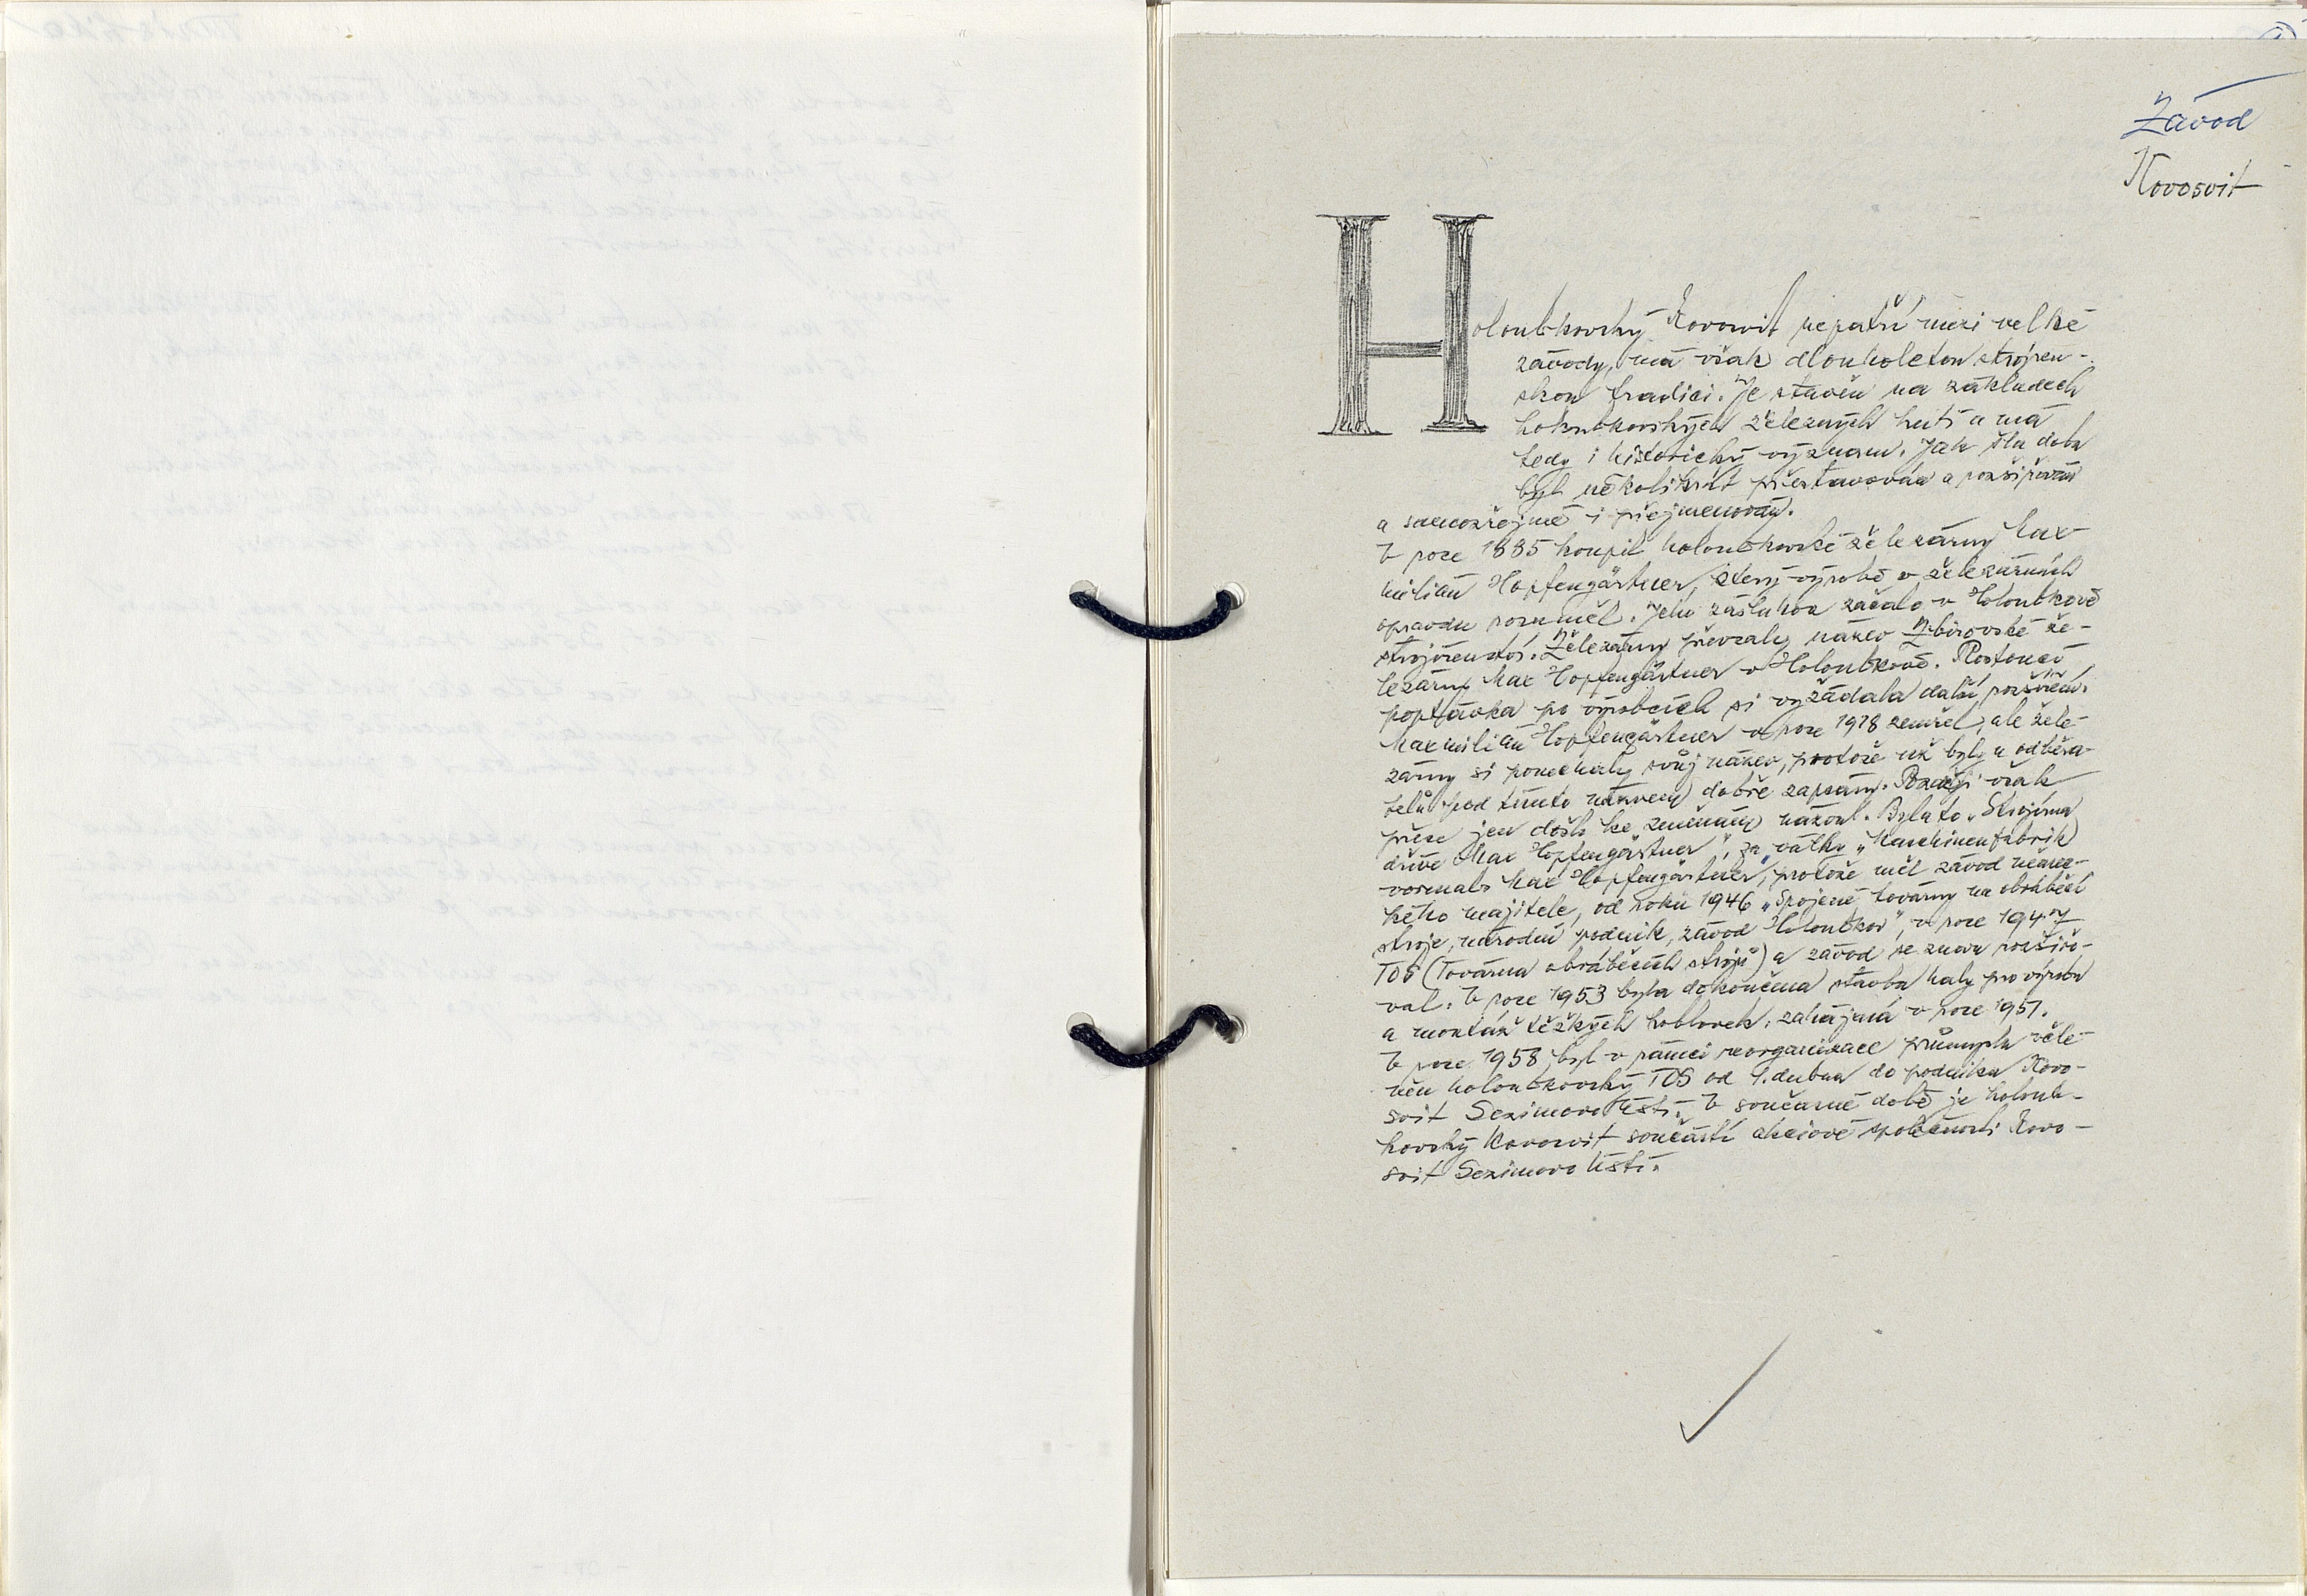 Závod
Kovosvit
Holoubkovský Kovosvit nepatří mezi velké
závody, má však dlouholetou strojíren-
skou tradici. Je stavěn na základech
holoubkovských železných hutí a má
tedy i historický význam. Jak šla doba
byl několikrát přestavován a rozšiřován
a samozřejmě i přejmenován.
V roce 1885 koupil holoubkovské železárny Max-
milián Hopfengärtner, který výrobě v železárnách
opravdu rozuměl. Jeho zásluhou začalo v Holoubkově
strojírenství. Železárny převzaly název Zbirovské že-
lezárny Max Hopfengärtner v Holoubkově. Rostoucí
poptávka po výrobcích si vyžádala další rozšíření.
Maxmilián Hopfengärtner v roce 1918 zemřel, ale žele-
zárny si ponechaly svůj název, protože už byly u odběra-
telů pod tímto názvem dobře zapsány. Později však
přece jen došlo ke změnám názvů. Byla to „Strojírna
dříve Max Hopfengärtner", za války „Maschinenfabrik
vormals Max Hopfengärtner, protože měl závod němec-
kého majitele, od roku 1946 „Spojené továrny na obráběcí
stroje, národní podnik, závod Holoubkov", v roce 1947
TOS (Továrna obráběcích strojů) a závod se znovu rozšiřo-
val. V roce 1953 byla dokončena stavba haly pro výrobu
a montáž těžkých hoblovek, zahájená v roce 1951.
V roce 1958 byl v rámci reorganizace průmyslu včle-
něn holoubkovský TOS od 1. dubna do podniku Kovo-
svit Sezimovo Ústí. V současné době je holoub-
kovský Kovosvit součástí akciové společnosti Kovo-
svit Sezimovo Ústí.